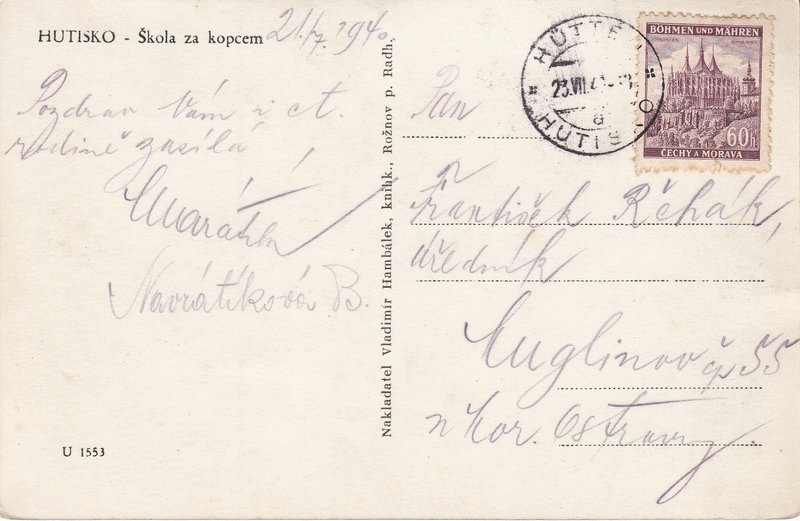 HUTISKO - Škola za kopcem
21./7. 1940
Pozdrav Vám i ct.
rodině zasílá
Navrátíková B.
U 1553
Nakladatel Vladimír Hambálek, knihk., Rožnov p. Radh.
HÜTTE
23.VII.4
a
HUTISKO
BÖHMEN UND MÄHREN
60h
ČECHY A MORAVA
Pan
František Řehák,
úředník
Muglinov čp 55
u Mor. Ostravy.